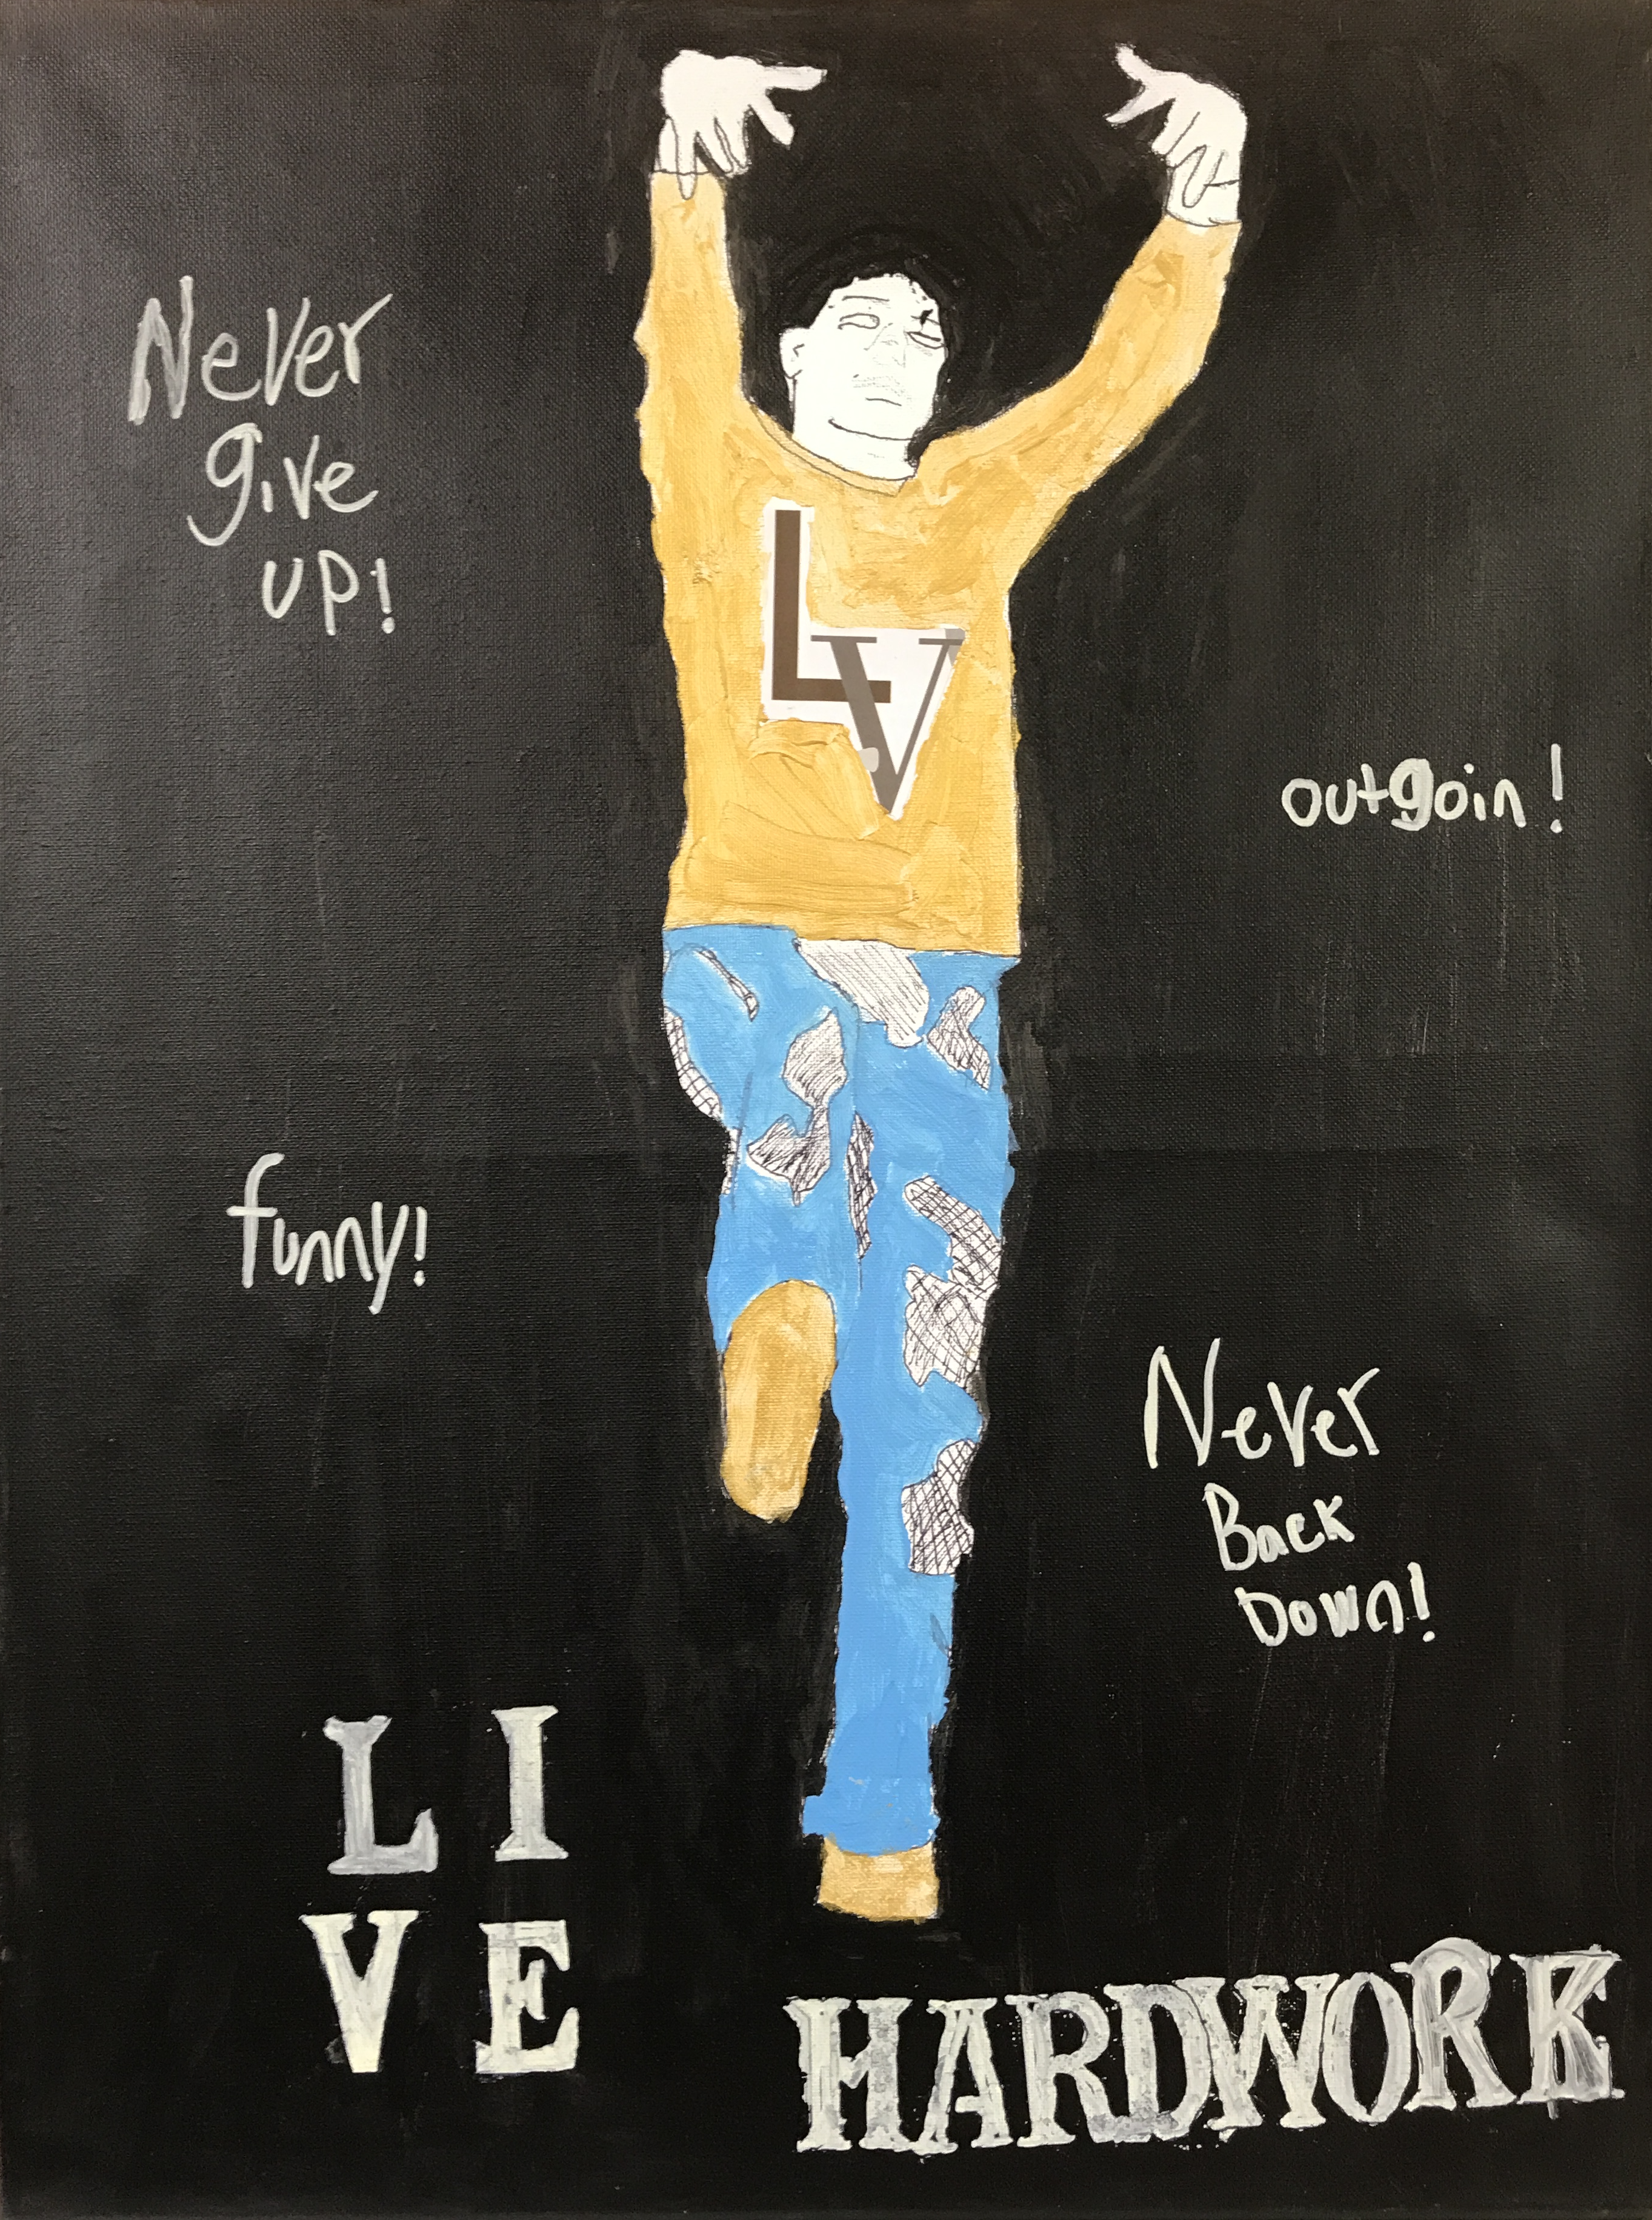 Never
give
up!
LV
outgoin!
funny!
Never
Back
Down!
LI
VE
HARDWORK